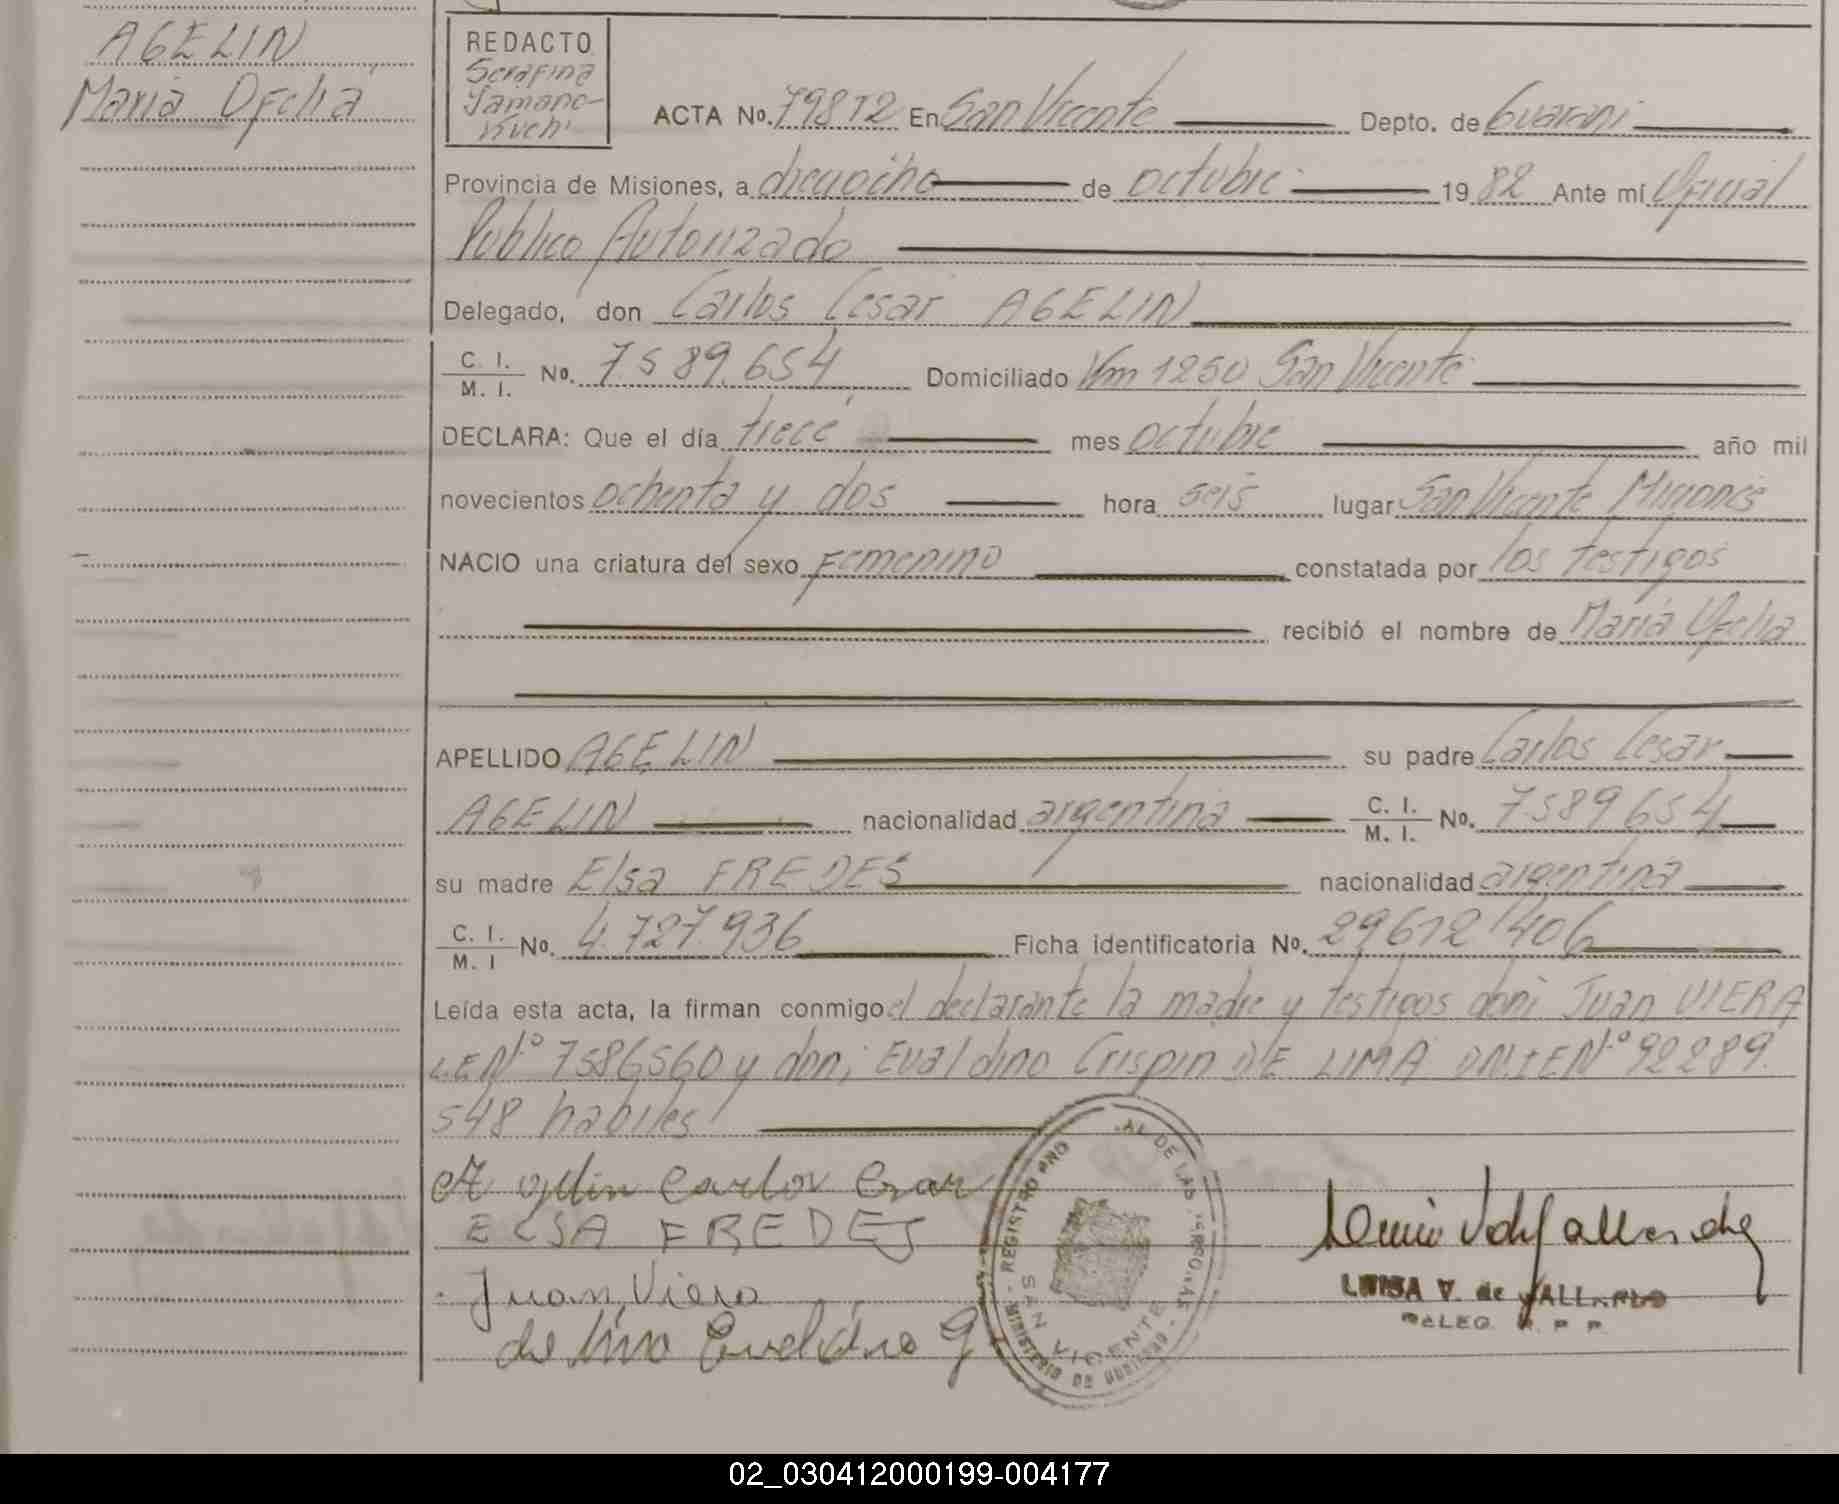 AGELIN
Maria Ofelia
REDACTO
Serafina
Yamano-
Kuchi
ACTA No. 79812 En San Vicente Depto. de Guarani
Provincia de Misiones, a dieciocho de octubre 19 82 Ante mí Oficial
Publico Autorizado
Delegado, don Carlos Cesar AGELIN
C. I.
M. I. No. 7.589.654 Domiciliado Km 1250 San Vicente
DECLARA: Que el día trece mes octubre año mil
novecientos ochenta y dos hora seis lugar San Vicente Misiones
NACIO una criatura del sexo Femenino constatada por los testigos
recibió el nombre de Maria Ofelia
APELLIDO AGELIN su padre Carlos Cesar
AGELIN nacionalidad argentina C. I.
M. I. No. 7589654
su madre Elsa FREDES nacionalidad argentina
C. I.
M. I No. 4.727.936 Ficha identificatoria No. 29612406
Leída esta acta, la firman conmigo el declarante la madre y testigos don: Juan VIERA
L.E.Nº 7586560 y don; Evaldino Crispin DE LIMA DNIENº 92289.
548 habiles
Carlos Cesar
ELSA FREDES
Juan Viera
de lima Evaldino
REGISTRO PRO AL DE LAS PERSONAS
SAN VICENTE
MINISTERIO DE GOBIERNO
LUISA V. de
DELEG. R. P. P.
02_030412000199-004177